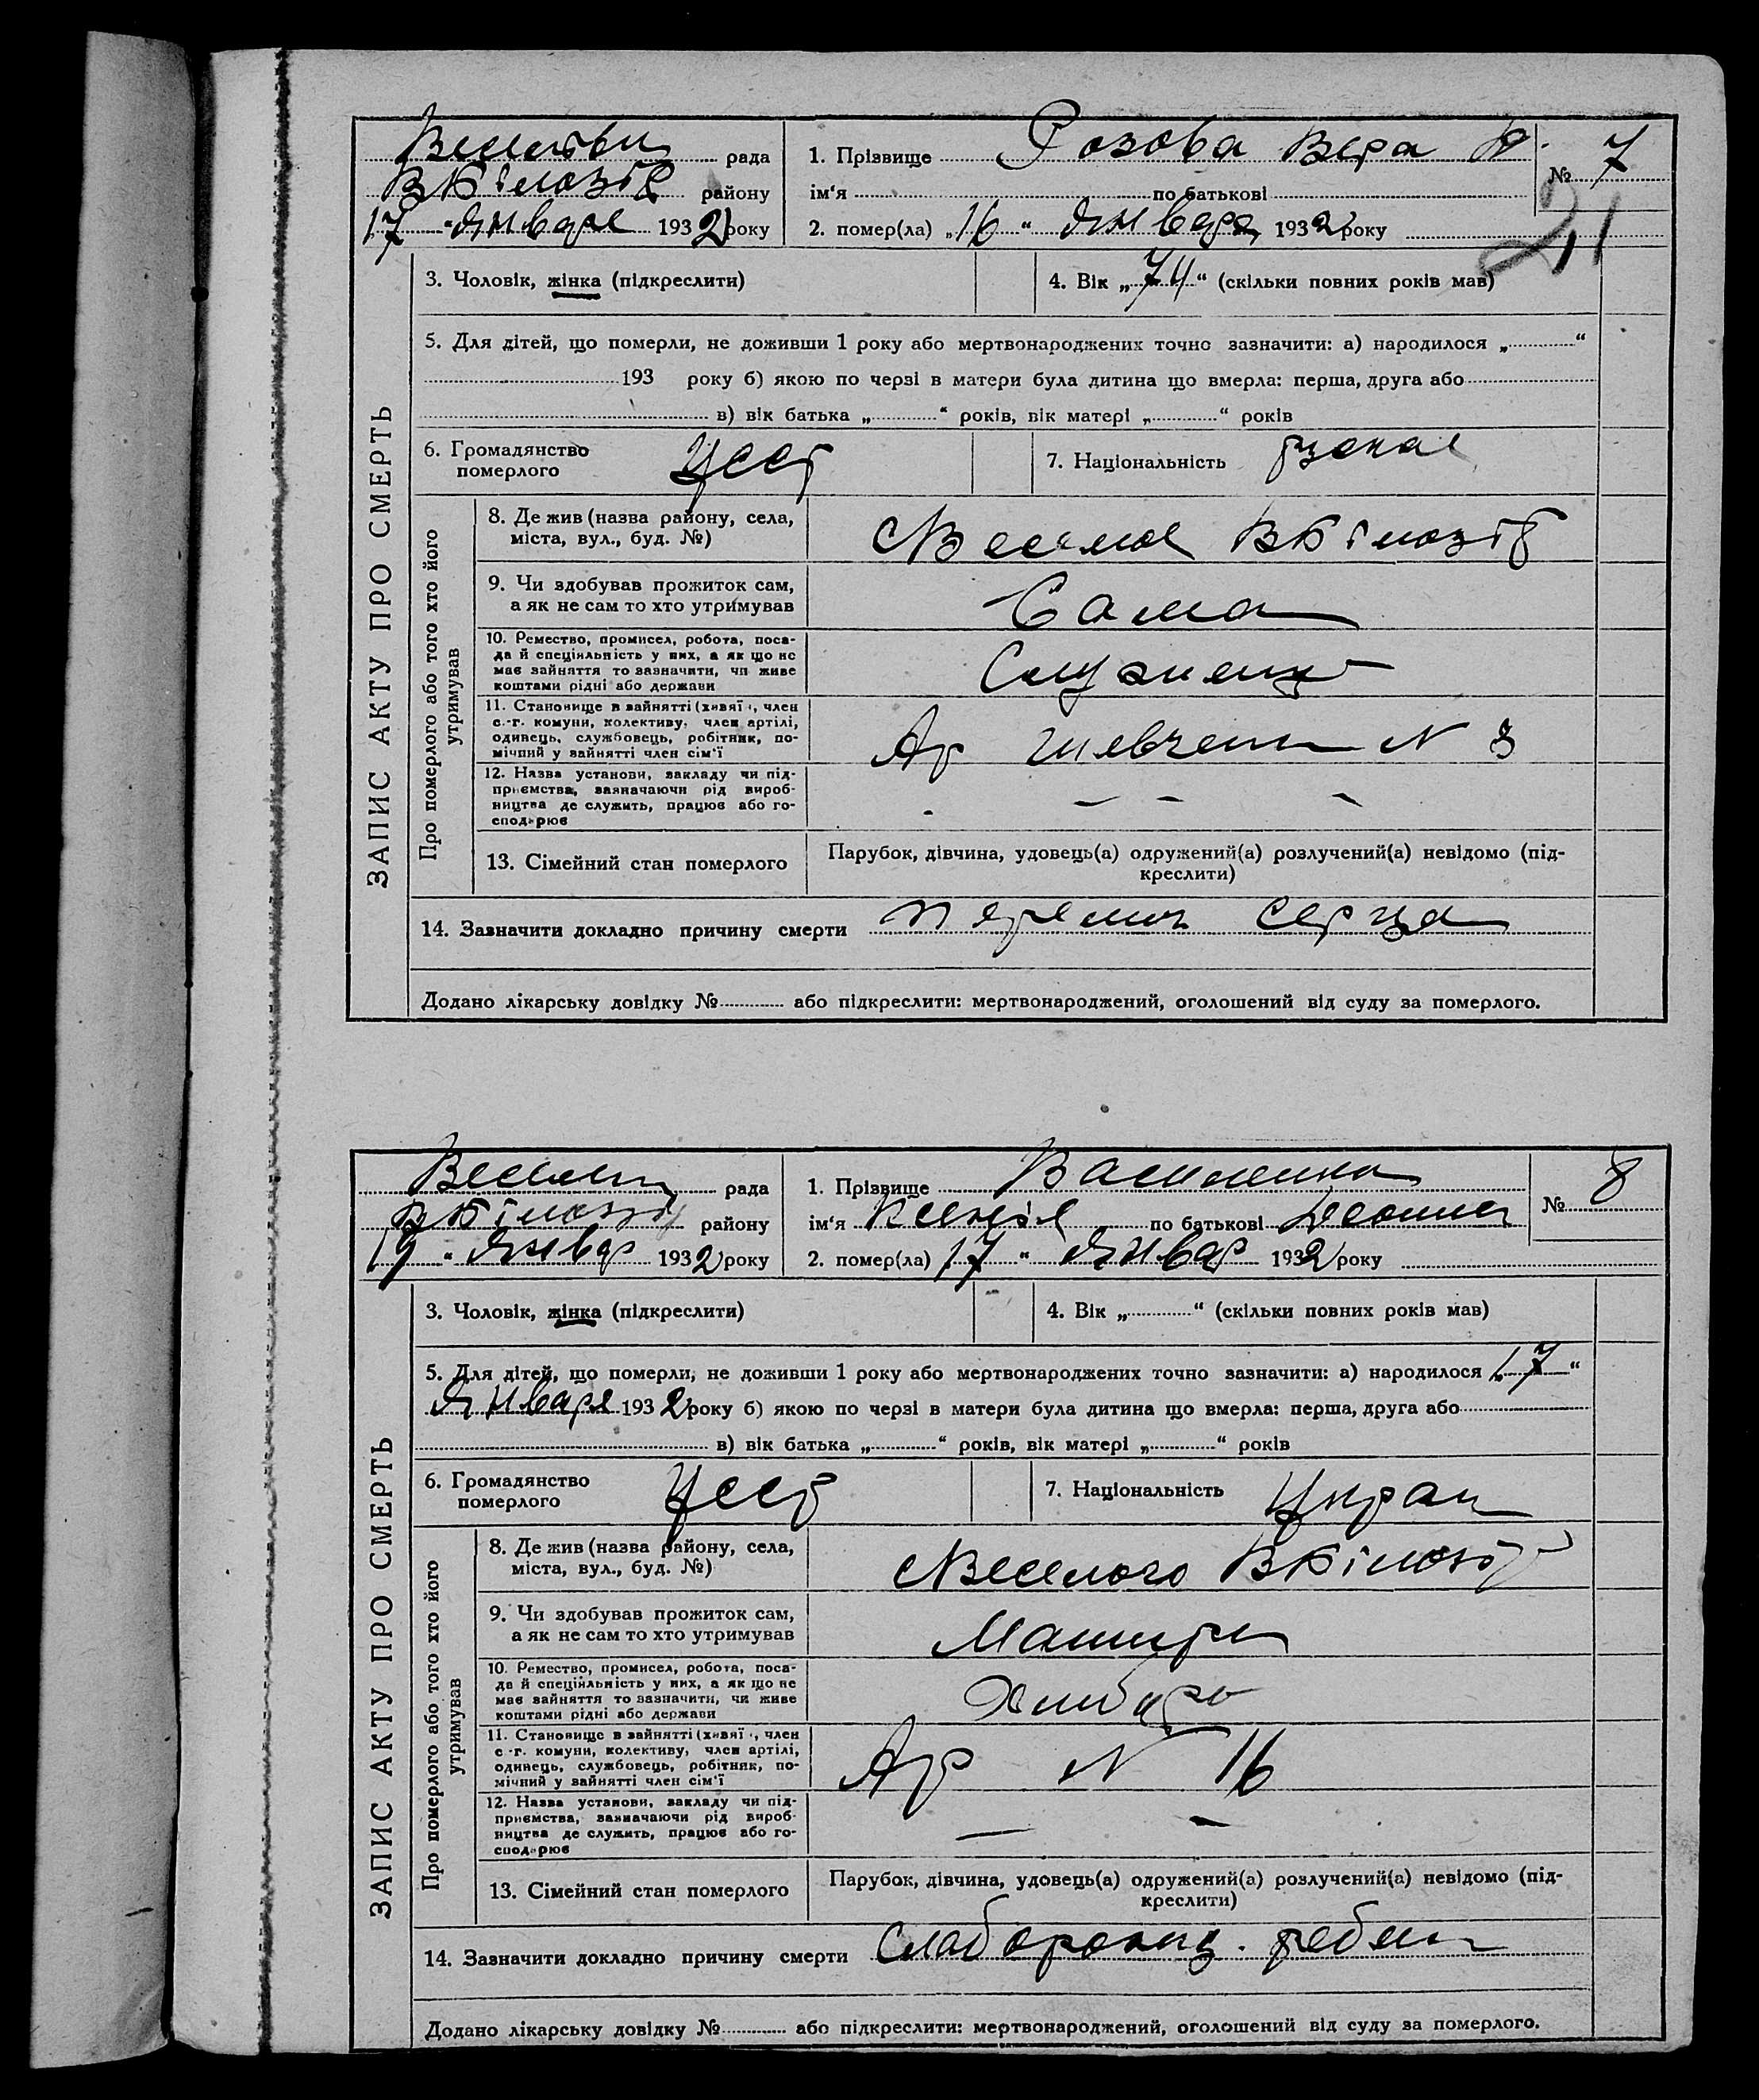 рада
району
17 "Января 1932 року
1. Прізвище Розова Вера
ім'я по батькові
№ 7
2. помер(ла) „16 " Января 1932 року
21
3. Чоловік, жінка (підкреслити)
4. Вік „74" (скільки повних років мав)
5. Для дітей, що померли, не доживши 1 року або мертвонароджених точно зазначити: а) народилося „ "
193 року б) якою по черзі в матери була дитина що вмерла: перша, друга або
в) вік батька „ " років, вік матері „ " років
6. Громадянство
померлого
Усср
7. Національність
ЗАПИС АКТУ ПРО СМЕРТЬ
Про померлого або того хто його
утримував
8. Де жив (назва району, села,
міста, вул., буд. №)
9. Чи здобував прожиток сам,
а як не сам то хто утримував
Сама
10. Ремество, промисел, робота, поса-
да й спеціяльність у них, а як що не
має зайняття то зазначити, чи живе
коштами рідні або держави
11. Становище в зайнятті (хазяї , член
с.-г. комуни, колективу, член артілі,
одинець, службовець, робітник, по-
мічний у зайнятті член сім'ї
Ар N 3
12. Назва установи, закладу чи під-
приємства, зазначаючи рід вироб-
ництва де служить, працює або го-
сподарює
13. Сімейний стан померлого
Парубок, дівчина, удовець(а) одружений(а) розлучений(а) невідомо (під-
креслити)
14. Зазначити докладно причину смерти серца
Додано лікарську довідку № або підкреслити: мертвонароджений, оголошений від суду за померлого.
рада
району
19 " Январ 1932 року
1. Прізвище Василенко
ім'я по батькові
№ 8
2. помер(ла) 17 " Январ 1932 року
3. Чоловік, жінка (підкреслити)
4. Вік „ " (скільки повних років мав)
5. Для дітей, що померли, не доживши 1 року або мертвонароджених точно зазначити: а) народилося „17"
Января 1932 року б) якою по черзі в матери була дитина що вмерла: перша, друга або
в) вік батька „ " років, вік матері „ " років
6. Громадянство
померлого
Усср
7. Національність Укран
ЗАПИС АКТУ ПРО СМЕРТЬ
Про померлого або того хто його
утримував
8. Де жив (назва району, села,
міста, вул., буд. №)
Веселого
9. Чи здобував прожиток сам,
а як не сам то хто утримував
10. Ремество, промисел, робота, поса-
да й спеціяльність у них, а як що не
має зайняття то зазначити, чи живе
коштами рідні або держави
11. Становище в зайнятті (хазяї , член
с.-г. комуни, колективу, член артілі,
одинець, службовець, робітник, по-
мічний у зайнятті член сім'ї
Ар N 16
12. Назва установи, закладу чи під-
приємства, зазначаючи рід вироб-
ництва де служить, працює або го-
сподарює
13. Сімейний стан померлого
Парубок, дівчина, удовець(а) одружений(а) розлучений(а) невідомо (під-
креслити)
14. Зазначити докладно причину смерти
Додано лікарську довідку № або підкреслити: мертвонароджений, оголошений від суду за померлого.